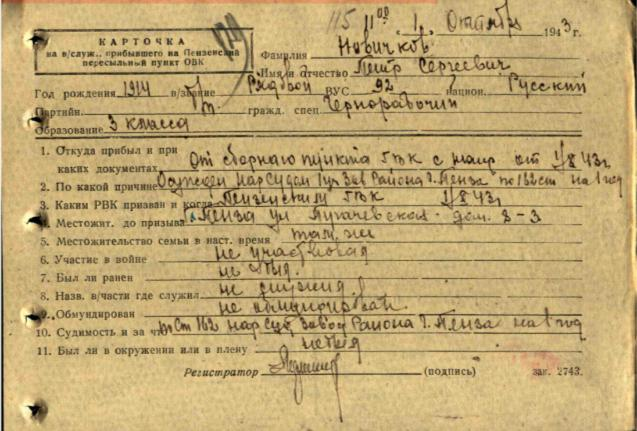 115 11 00 1 Октября 1943 г.
КАРТОЧКА
на в/служ., прибывшего на Пензенский
пересыльный пункт ОВК
Фамилия Новичков
Имя и отчество Петр Сергеевич
Год рождения 1914 в/звание Рядвой ВУС 92 национ. Русский
Партийн. гражд. спец. Чернорабочий
Образование 3 класса
1. Откуда прибыл и при
каких документах От сборного пункта ГВК с напр. от 1/8 43 г.
2. По какой причине Осужден Нарсудом 1 уч Зав Района г. Пенза по 162 ст на 1 год
3. Каким РВК призван и когда Пензенским ГВК 1/8 43 г
4. Местожит. до призыва г. Пенза ул Пугачевская дом. 8-3
5. Местожительство семьи в наст. время там же
6. Участие в войне не участвовал
7. Был ли ранен не был.
8. Назв. в/части где служил не служил
9. Обмундирован не обмундирован
10. Судимость и за что по Ст 162 нарсуд Завод Района г. Пенза на 1 год
11. Был ли в окружении или в плену не был
Регистратор (подпись) зак. 2743.